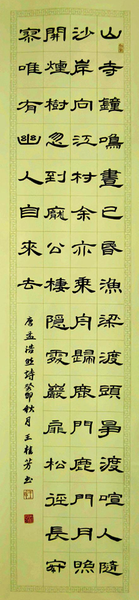 山寺鐘鳴晝已昏漁梁渡頭爭渡喧人隨
沙岸向江村余亦乘舟歸鹿門鹿門月照
開煙樹忽到龐公棲隱處巖扉松徑長寂
寥唯有幽人自來去
唐孟浩然詩癸卯秋月王桂芳书